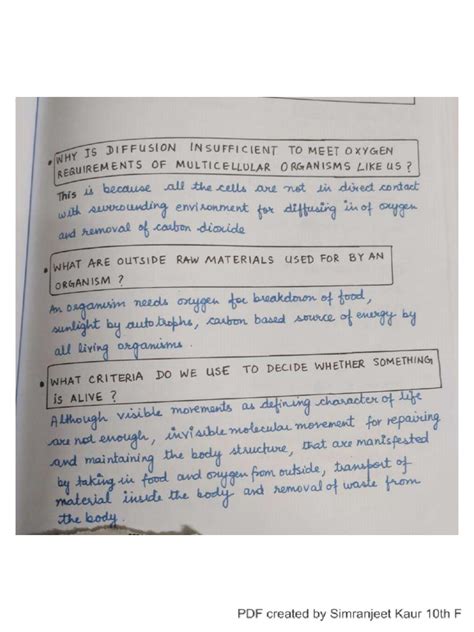 • WHY IS DIFFUSION INSUFFICIENT TO MEET OXYGEN
REQUIREMENTS OF MULTICELLULAR ORGANISMS LIKE US ?
This is because all the cells are not in direct contact
with surrounding environment for diffusing in of oxygen
and removal of carbon dioxide
• WHAT ARE OUTSIDE RAW MATERIALS USED FOR BY AN
ORGANISM ?
An organism needs oxygen for breakdown of food,
sunlight by autotrophs, carbon based source of energy by
all living organisms.
• WHAT CRITERIA DO WE USE TO DECIDE WHETHER SOMETHING
IS ALIVE ?
Although visible movements as defining character of life
are not enough, invisible molecular movement for repairing
and maintaining the body structure, that are manifested
by taking in food and oxygen from outside, transport of
material inside the body and removal of waste from
the body.
PDF created by Simranjeet Kaur 10th F